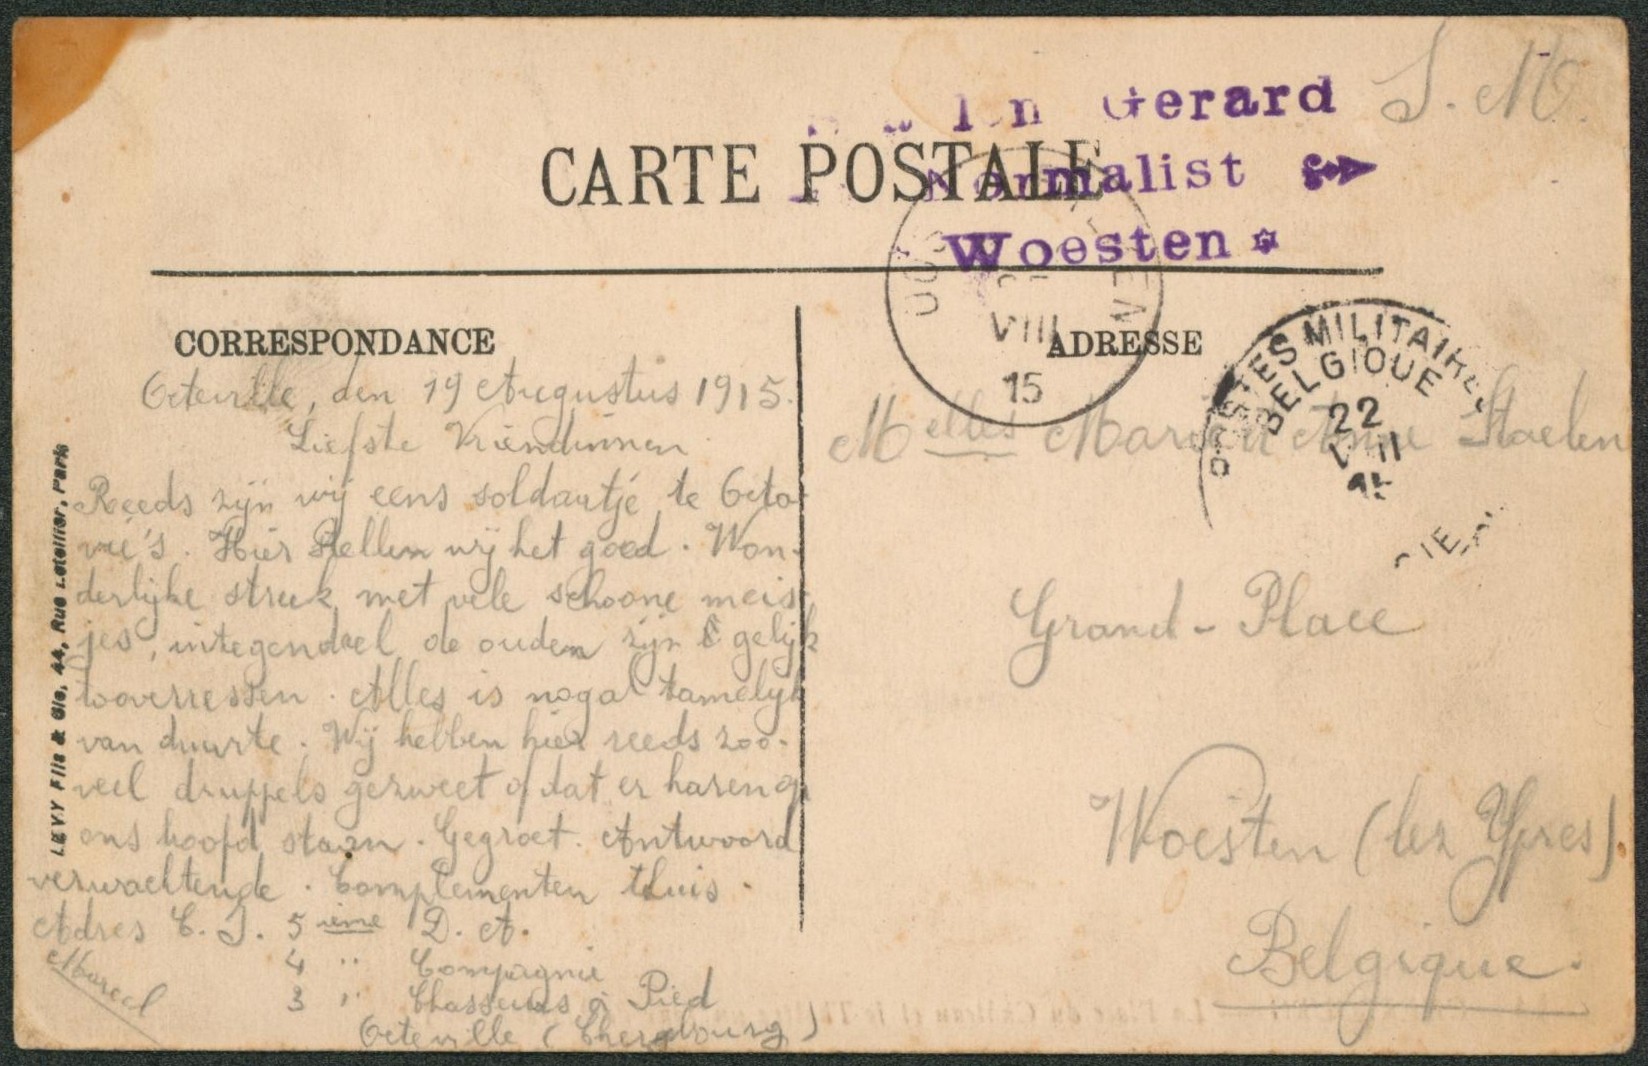 Gerard
S. M.
CARTE POSTALE
Normalist
Woesten
VIII
15
CORRESPONDANCE
ADRESSE
POSTES MILITAIRES
BELGIQUE
22
VIII
15
Octeville, den 19 Augustus 1915.
Liefste Vriendinnen
Reeds zijn wij eens soldaatje te Octo-
vie's. Hier stellen wij het goed. Won-
derlijke streek met vele schoone meis-
jes, integendeel de ouden zijn gelijk
tooveressen. Alles is nogal tamelijk
van duurte. Wij hebben hier reeds zoo-
veel druppels gezweet of dat er haren op
ons hoofd staan. Gegroet. Antwoord
verwachtende. Complementen thuis.
Adres C. I. 5 ième D. A.
4 " Compagnie
3 " Chasseurs à Pied
Octeville (Cherbourg)
Marcel
Melles Maria Anne Staelen
Grand-Place
Woesten (lez Ypres).
Belgique.
LEVY Fils & Cie, 44, Rue Letellier, Paris
La Place du Château et le Théâtre